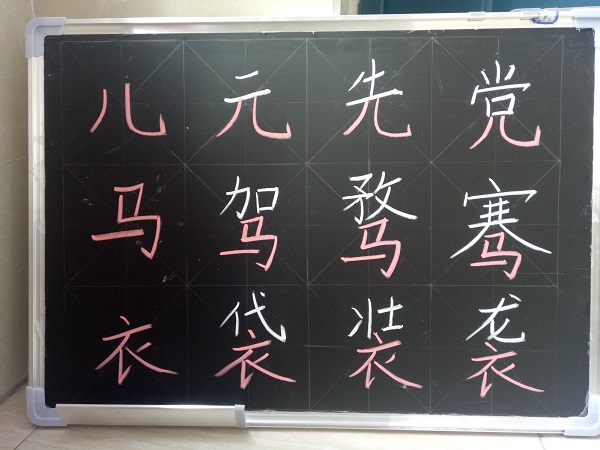 儿 元 先 党
马 驾 骛 骞
衣 袋 装 袭